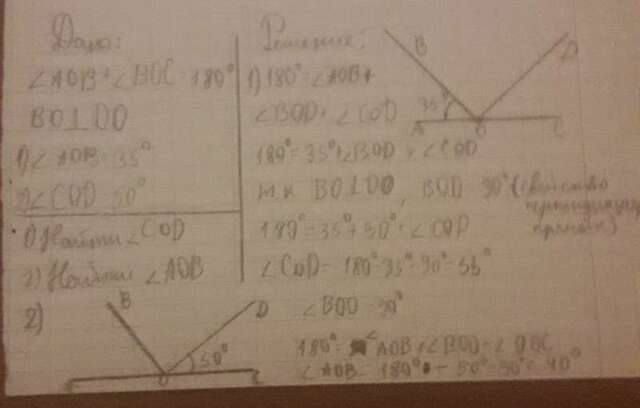 Дано:
∠AOB+∠BOC=180°
BO⊥DO
1) ∠AOB=35°
2) ∠COD=50°
1) Найти ∠COD
2) Найти ∠AOB
Решение:
1) 180°=∠AOB+
∠BOD+∠COD
180°=35°+∠BOD+∠COD
т.к BO⊥DO, BOD 90° (свойство
прямых)
180°=35°+90°+∠COD
∠COD=180°-35°-90°=55°
B
D
35°
A
O
C
2)
B
D
50°
O
∠BOD=90°
180°=∠AOB+∠BOD+∠DOC
∠AOB=180°-50°-90°=40°